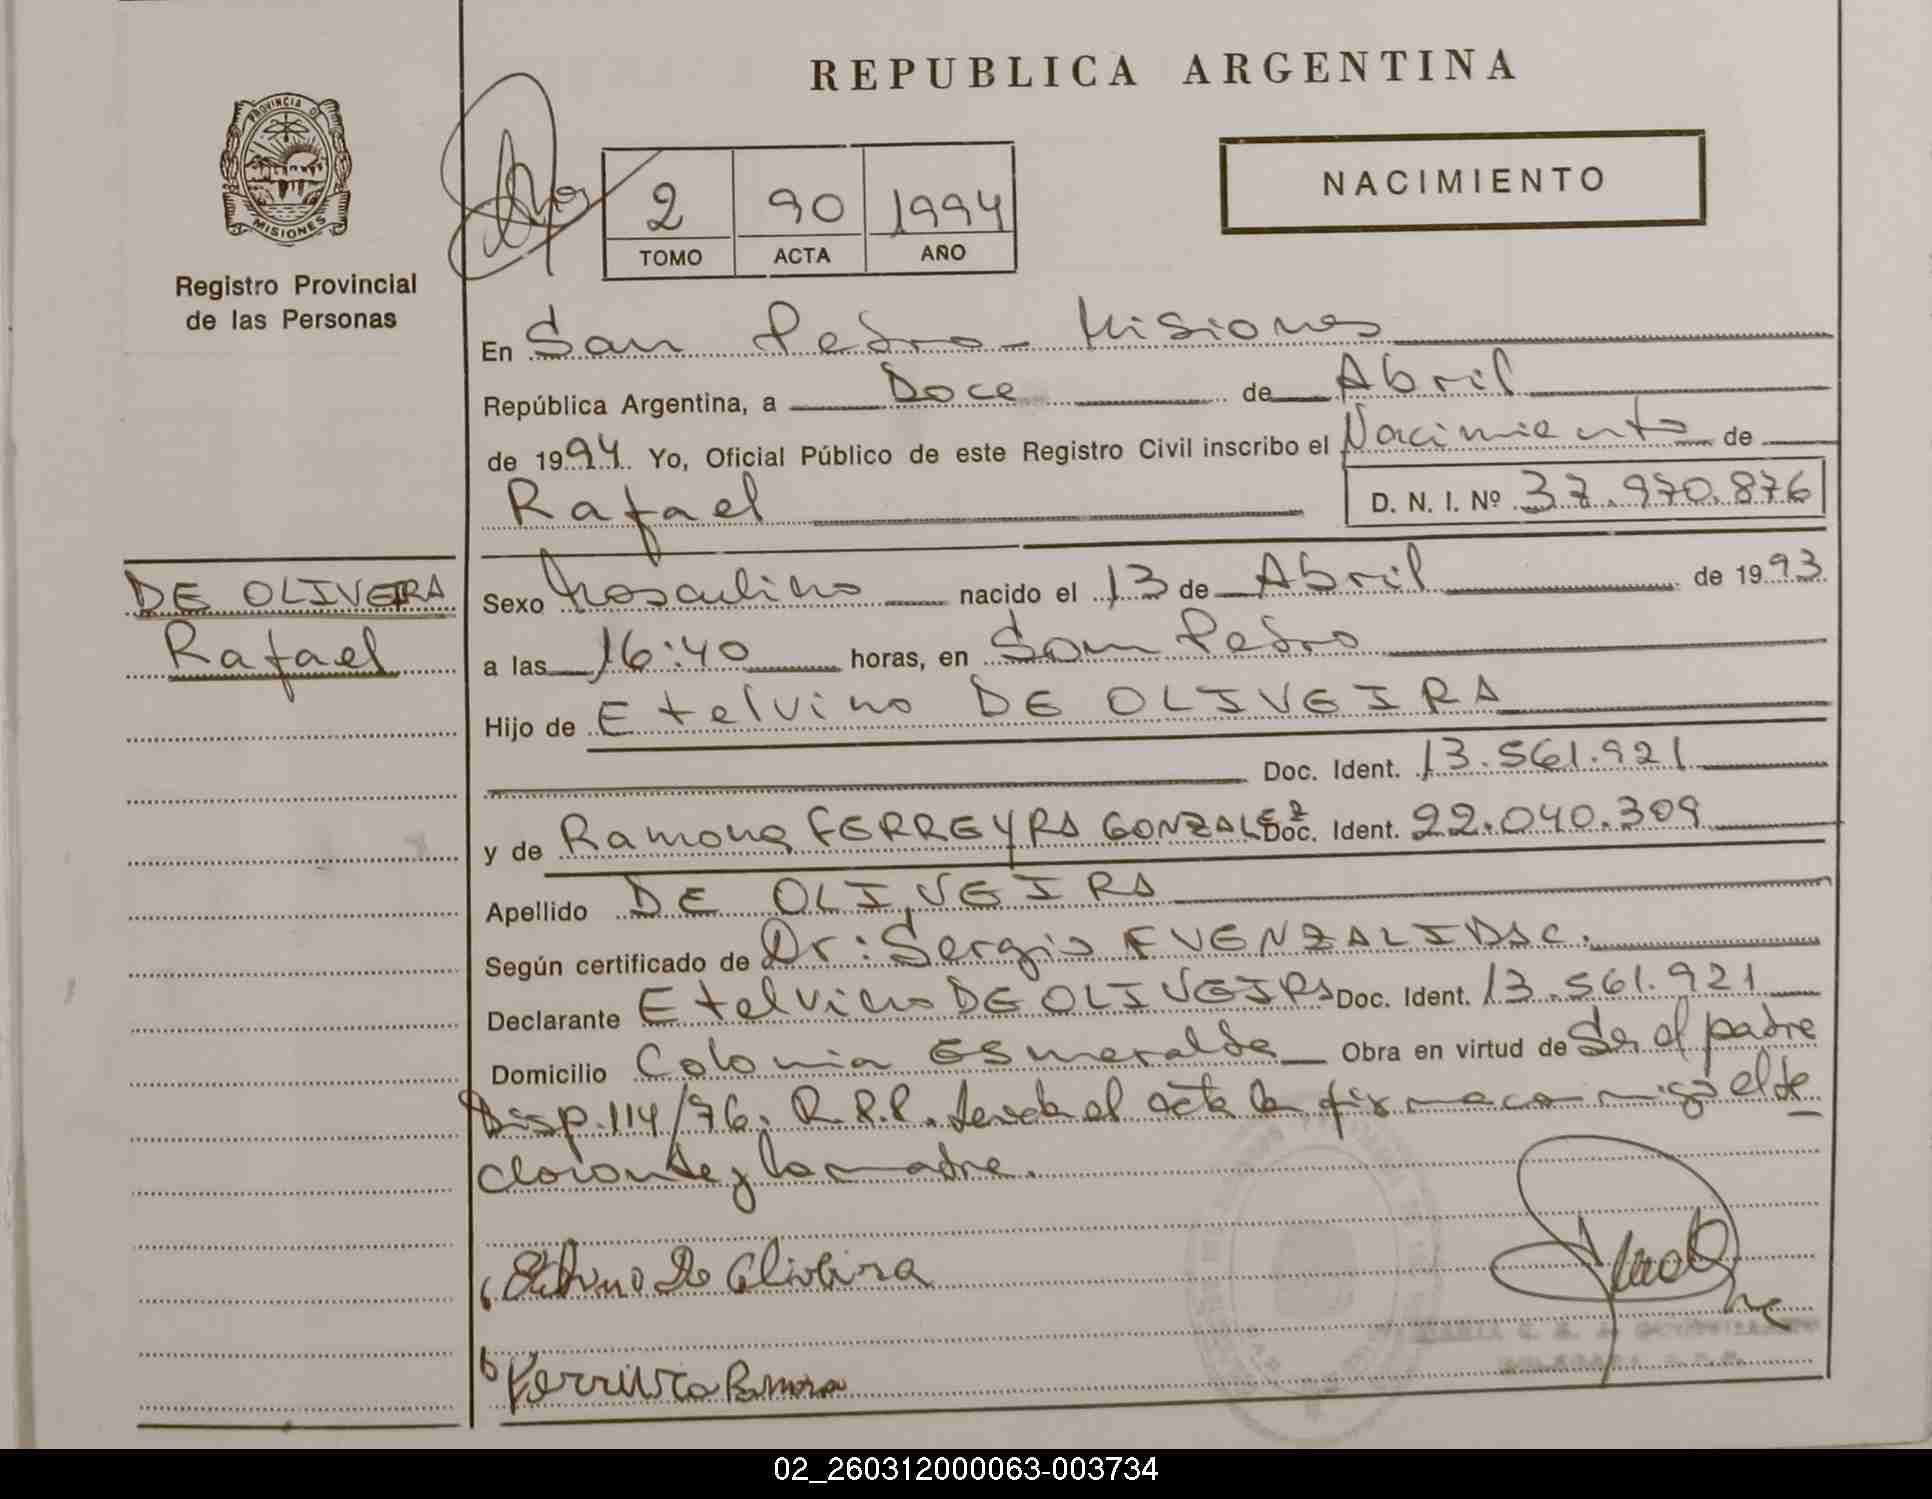 REPUBLICA ARGENTINA
PROVINCIA D
MISIONES
Registro Provincial
de las Personas
2 90 1994
TOMO ACTA AÑO
NACIMIENTO
En San Pedro - Misiones
República Argentina, a Doce de Abril
de 1994. Yo, Oficial Público de este Registro Civil inscribo el Nacimiento de
Rafael D. N. I. Nº 37.970.876
DE OLIVEIRA
Rafael
Sexo Masculino nacido el 13 de Abril de 1993
a las 16:40 horas, en San Pedro
Hijo de Etelvino DE OLIVEIRA
Doc. Ident. 13.561.921
y de Ramona FERREYRA GONZALEZ Doc. Ident. 22.040.309
Apellido DE OLIVEIRA
Según certificado de Dr: Sergio FUENZALIDA C.
Declarante Etelvino DE OLIVEIRA Doc. Ident. 13.561.921
Domicilio Colonia Esmeralda Obra en virtud de Ser el padre
Disp. 114/76. R.P.P. Leida el acta la firma conmigo el de
clarante y la madre.
Etelvino De Oliveira
Ferreira Ramona
02_260312000063-003734